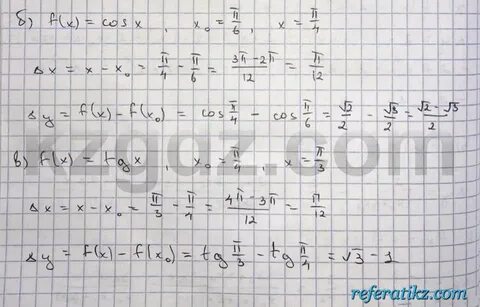 б) f(x) = cos x , x₀ = π/6 , x = π/4
Δx = x - x₀ = π/4 - π/6 = (3π - 2π)/12 = π/12
Δy = f(x) - f(x₀) = cos π/4 - cos π/6 = √2/2 - √3/2 = (√2 - √3)/2
в) f(x) = tg x , x₀ = π/4 , x = π/3
Δx = x - x₀ = π/3 - π/4 = (4π - 3π)/12 = π/12
Δy = f(x) - f(x₀) = tg π/3 - tg π/4 = √3 - 1
kzgdz.com
referatikz.com